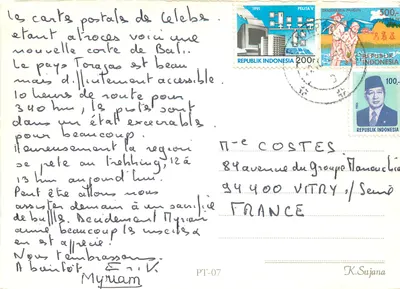 Les cartes postales de Célèbes
étant atroces voici une
nouvelle carte de Bali.
Le pays Torajas est beau
mais difficilement accessible.
10 heures de route pour
340 km, les pistes sont
dans un état exécrable
pour beaucoup.
Heureusement la région
se prête au trekking, 12 à
13 km aujourd'hui.
Peut être allons nous
assister demain à un sacrifice
de buffle. Décidément Myriam
aime beaucoup les
en est
Nous t'embrassons.
A bientôt
Myriam
1991
PELITA V
200r
REPUBLIK INDONESIA
300
REPUBLIK INDONESIA
100
REPUBLIK INDONESIA
Me COSTES.
84 avenue du Groupe Manouchian
94400 VITRY s/ Seine
FRANCE
PT-07
K. Sajana